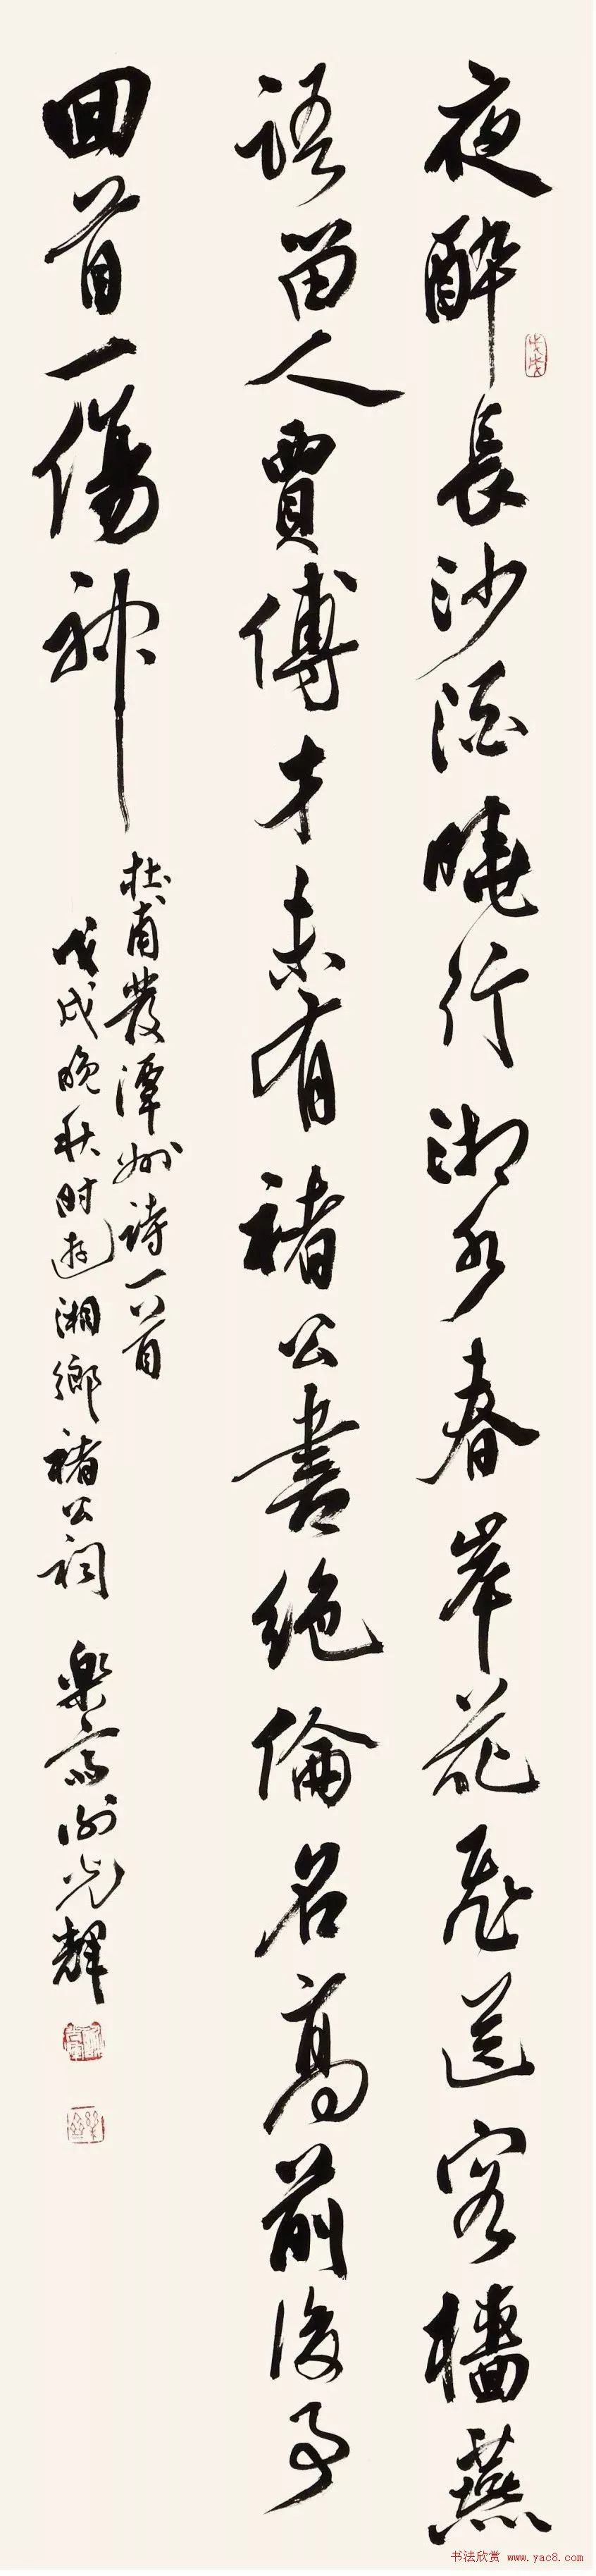 夜醉長沙酒曉行湘水春岸花飛送客檣燕
語留人賈傅才未有褚公書絕倫名高前後事
回首一傷神
杜甫發潭州詩一首
戊戌晚秋时遊湘鄉褚公祠 樂齋謝光輝
戊戌
书法欣赏 www.yac8.com